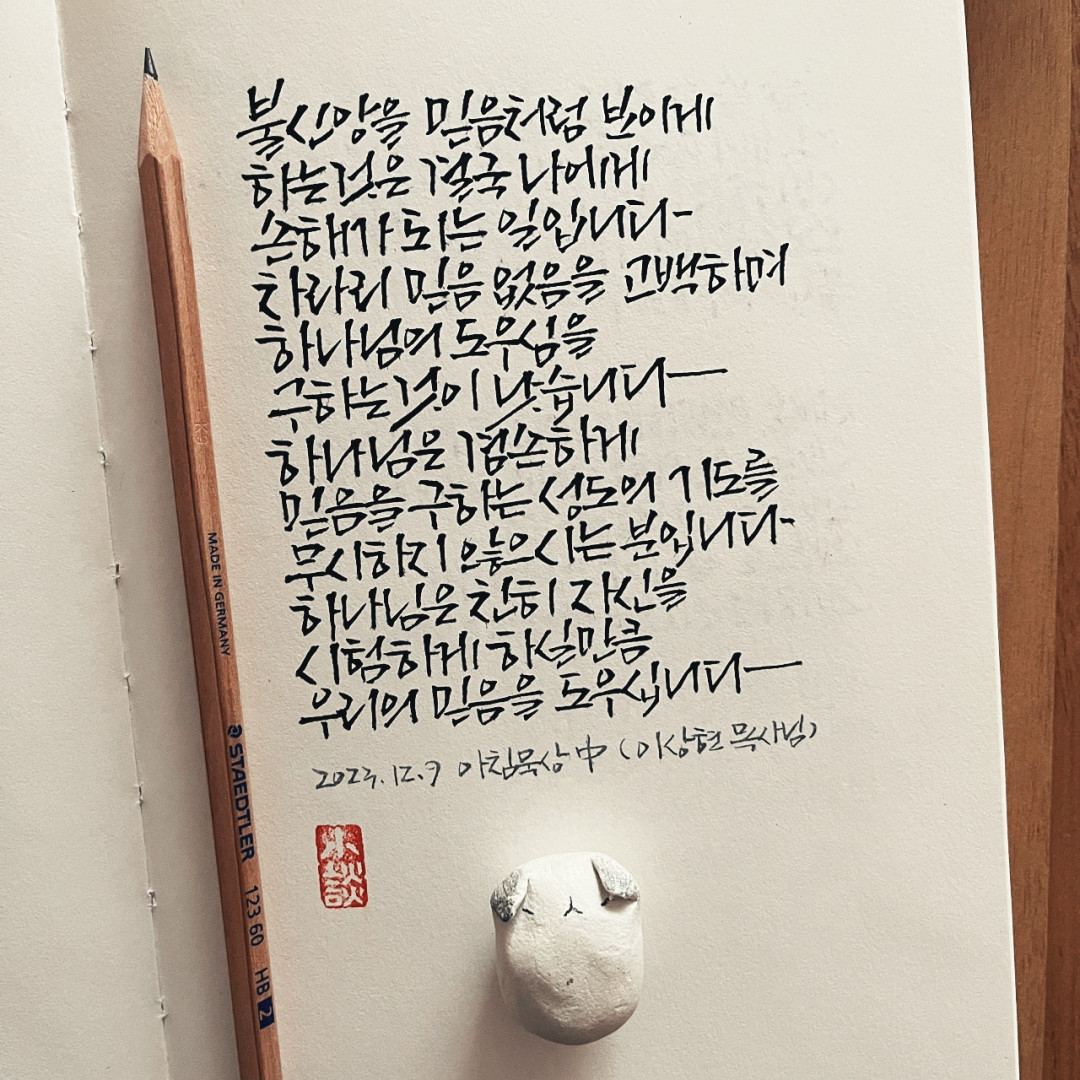 불신앙을 믿음처럼 보이게
하는것은 결국 나에게
손해가 되는 일입니다-
차라리 믿음 없음을 고백하며
하나님의 도우심을
구하는것이 낫습니다—
하나님은 겸손하게
믿음을 구하는 성도의 기도를
무시하지 않으시는 분입니다-
하나님은 친히 자신을
시험하게 하실만큼
우리의 믿음을 도우십니다—
2023.12.9 아침묵상 中 (이상현 목사님)
MADE IN GERMANY
STAEDTLER 123 60 HB 2